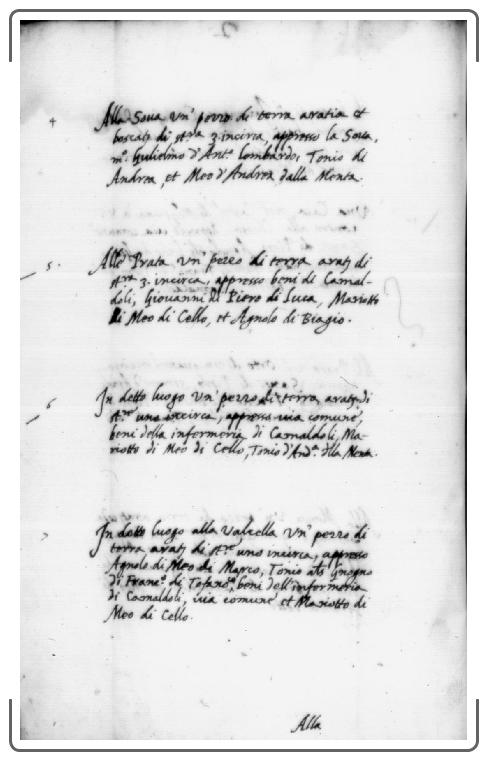 4
Alla Sova un' pezzo di terra aratia et
boscatª di stªra 3. incirca, appresso la Sova,
mº. Gulielmo d'Antº. lombardo, Tonio di
Andrea, et Meo d'Andrea dalla Menta.
5.
Alle Prata un' pezzo di terra aratª di
stªra 3. incirca, appresso beni di Camal-
doli, Giovanni di Piero di Luca, Mariotto
di Meo di Cello, et Agnolo di Biagio.
6
In detto luogo un' pezzo di terra aratª di
stªro uno incirca, appresso via comune,
beni della infermeria di Camaldoli, Ma-
riotto di Meo di Cello, Tonio d'Andª. dlla Menta.
7
In detto luogo alla Valcella un' pezzo di
terra aratª di stªro uno incirca, appresso
Agnolo di Meo di Marco, Tonio als Gnogno
di Francº. di Tofano, beni dell'infermeria
di Camaldoli, via comune et Mariotto di
Meo di Cello.
Alla